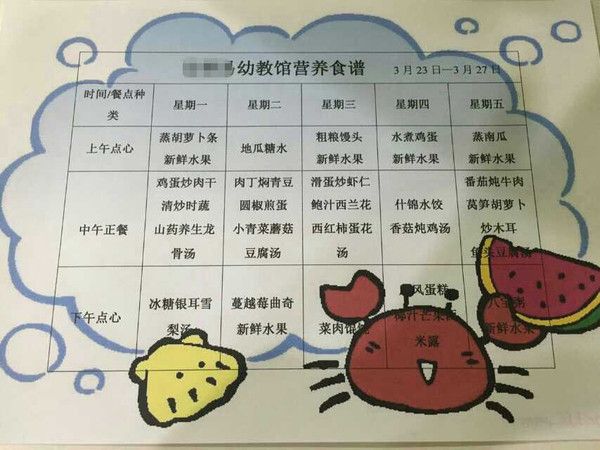 幼教馆营养食谱 3月23日—3月27日
时间/餐点种类 星期一 星期二 星期三 星期四 星期五
上午点心
蒸胡萝卜条
新鲜水果
地瓜糖水
粗粮馒头
新鲜水果
水煮鸡蛋
新鲜水果
蒸南瓜
新鲜水果
中午正餐
鸡蛋炒肉干
清炒时蔬
山药养生龙
骨汤
肉丁焖青豆
圆椒煎蛋
小青菜蘑菇
豆腐汤
滑蛋炒虾仁
鲍汁西兰花
西红柿蛋花
汤
什锦水饺
香菇炖鸡汤
番茄炖牛肉
莴笋胡萝卜
炒木耳
鱼头豆腐汤
下午点心
冰糖银耳雪
梨汤
蔓越莓曲奇
新鲜水果
菜肉馄饨
风蛋糕
椰汁芒果
米露
八宝粥
新鲜水果